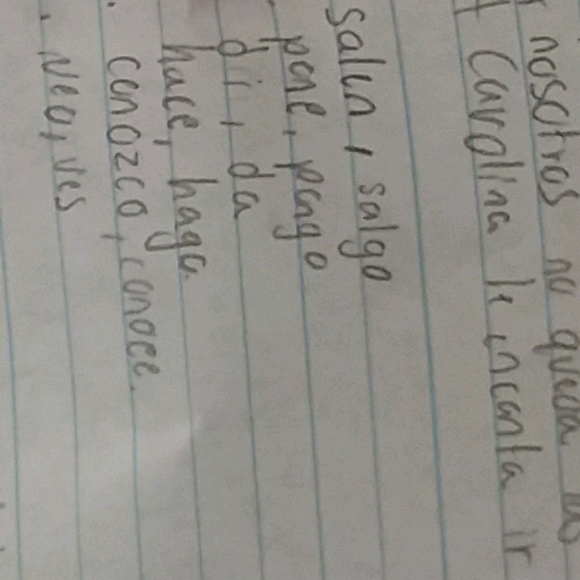 nosotros no queda
Carolina le encanta ir
salen, salgo
pone, pongo
di, da
hace, haga
conozco, conoce.
veo, ves